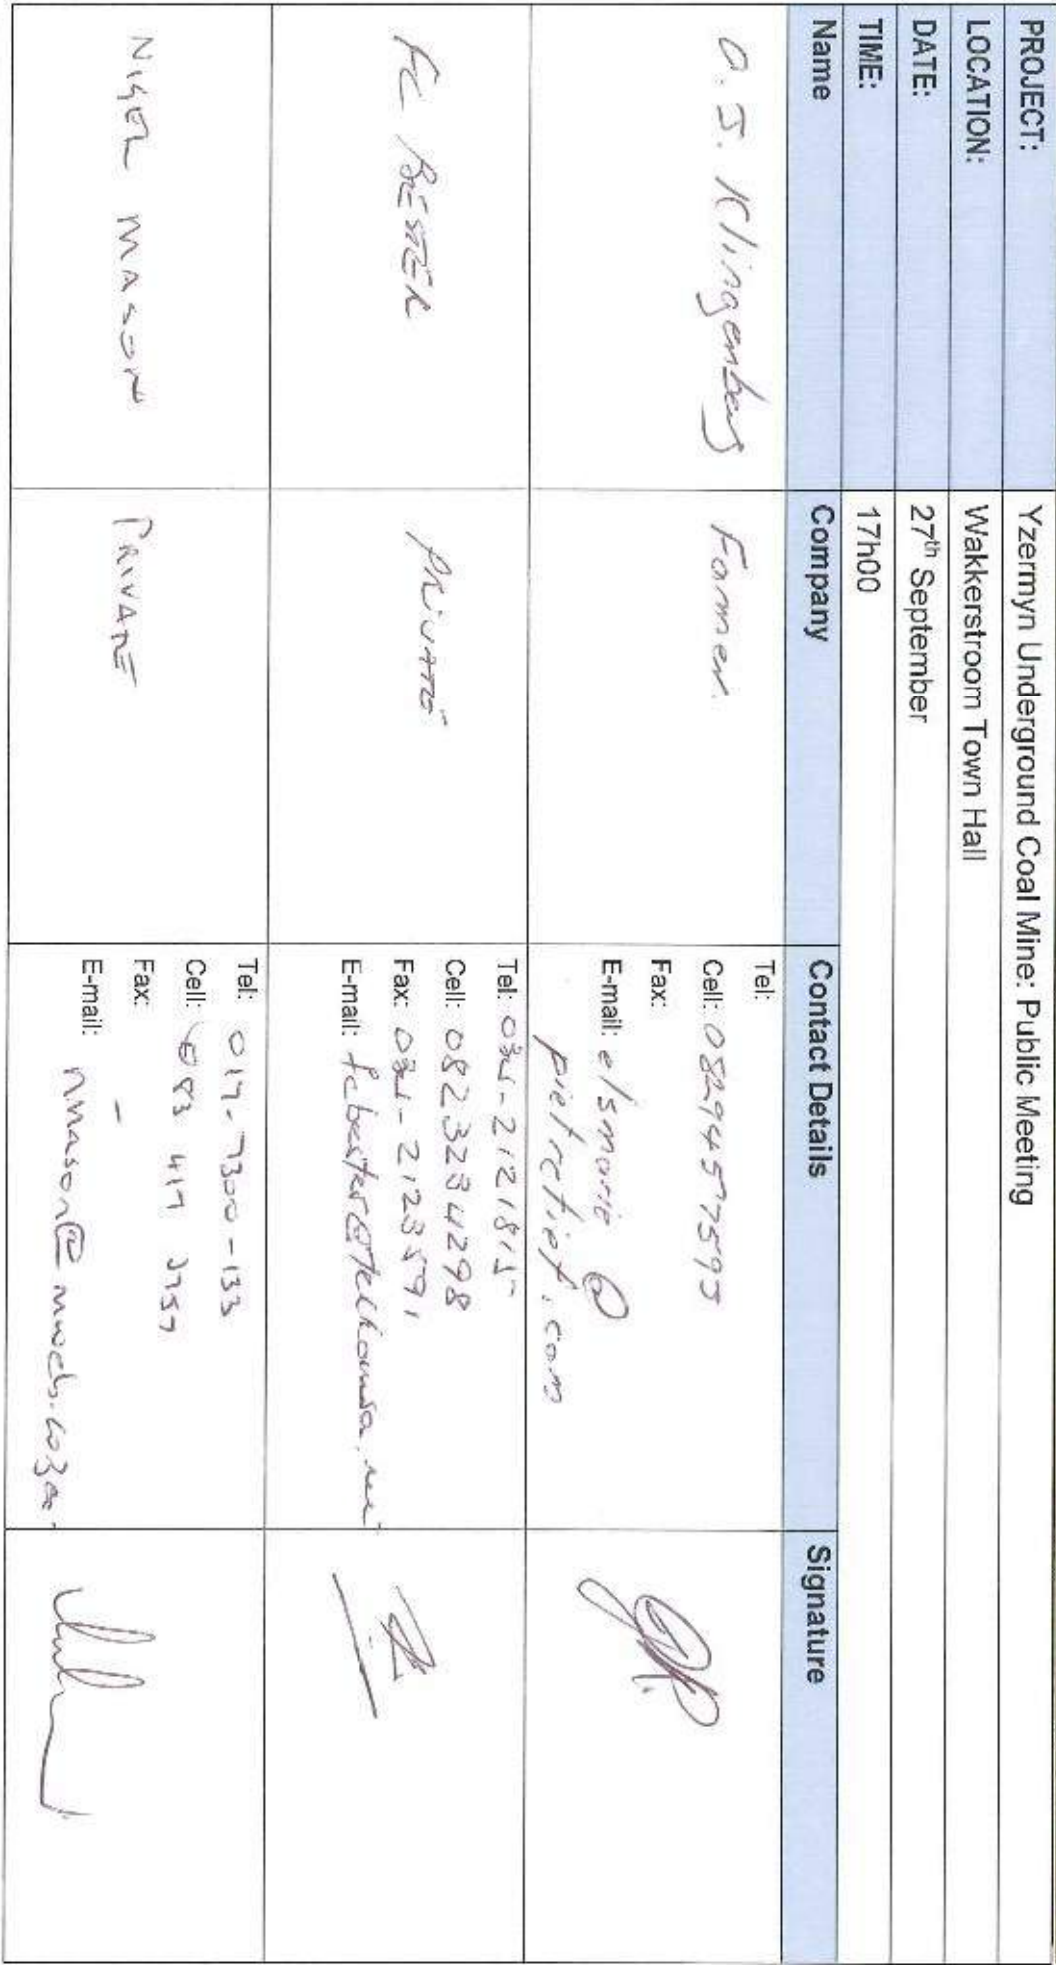 PROJECT: Yzermyn Underground Coal Mine: Public Meeting
LOCATION: Wakkerstroom Town Hall
DATE: 27th September
TIME: 17h00
Name Company Contact Details Signature
O. J. Klingenberg Farmer.
Tel:
Cell: 0829457595
Fax:
E-mail: elsmarie @
pietretief.com
FC BESTER PRIVATE
Tel: 034-2121815
Cell: 0823284298
Fax: 034-2123591
E-mail: fcbester@telkomsa.net
NIGEL MASON PRIVATE
Tel: 017-7300-133
Cell: 083 417
Fax: -
E-mail: nmason@mweb.co.za